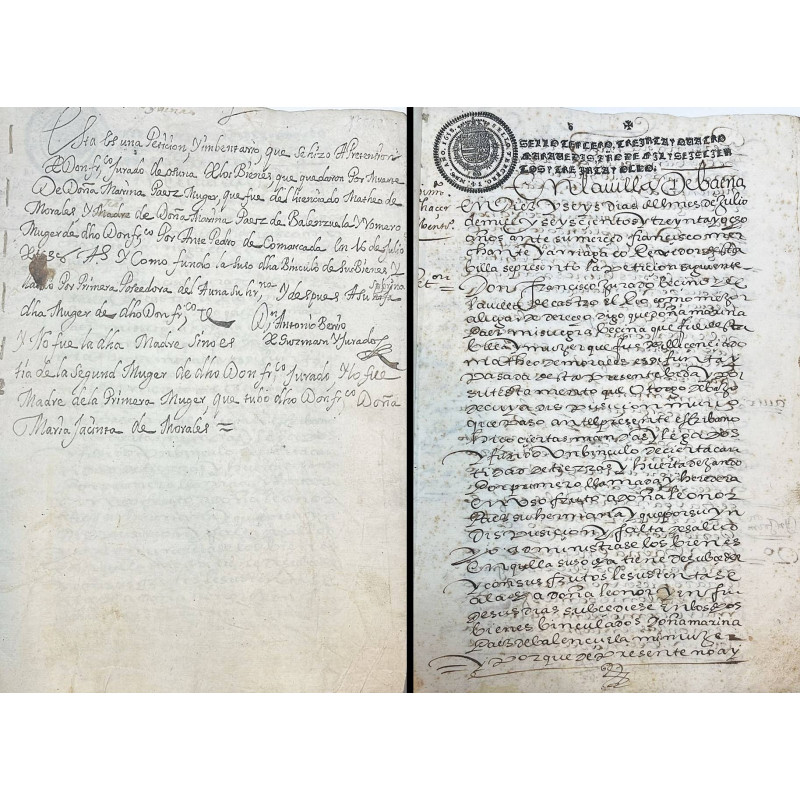 Esta es una Peticion, Y inbentario, que se hizo A Pretension
de Don fr.co Jurado de osuia de los Bienes que quedaron Por Muerte
De Doña Marina Paez Muger, que fue de licenciado Matheo de
Morales y Madre de Doña Marina Paez de Balenzuela y Romero
Muger de dho Don fr.co Por Ante Pedro de Comarcada en 16 de Julio
de 1638 As Y Como fundo la suso dha Binculo de sus Bienes y
llamo Por Primera Poreedora de A una su hr.na Y despues A su sobrina
dha Muger de dho Don fr.co
Dn Antonio
de Guzman Y Jurado
Y No fue la dha Madre Sino es
tia de la Segunda Muger de dho Don fr.co Jurado Y lo fue
Madre de la Primera Muger que tubo dho Don fr.co Doña
Maria Jacinta de Morales =
SELLO TERCERO, TREINTA Y QUATRO
MARAVEDIS, AÑO DE MIL Y SEISCIEN
TOS Y TREINTA Y OCHO.
En la uilla de baena
en diez y seys dias del mes de Julio
de mill y seyscientos y treynta y ocho
años ante su merced francisco mer
chante
billa se presento la peticion siguiente
Don francisco Jurado vecino de
la uilla de castro el Rio como mejor
aliga de derecho digo que doña marina
Paez mi suegra becina que fue de esta
billa y muger que fue del licenciado
matheo de morales es difunta y
Pasada de esta presente bida y por
su testamento que otorgo debajo
de cuya disposicion murio
que paso ante el presente escribano
hizo ciertas mandas y legados
y fundo un binculo de cierta can
tidad de tierras y huerta llamando
por primero llamada y heredera
en usofruto a doña leonor
Paez su hermana y que por su yn
disposicion y falta de salud
yo administrase los bienes
en aquella suso dha tiene de subceder
y con sus frutos le sustentase
a la dha doña leonor y en fin
de sus dias subcediese en los dhos
bienes binculados doña marina
Paez de balençuela mi muger
y porque de presente no ay